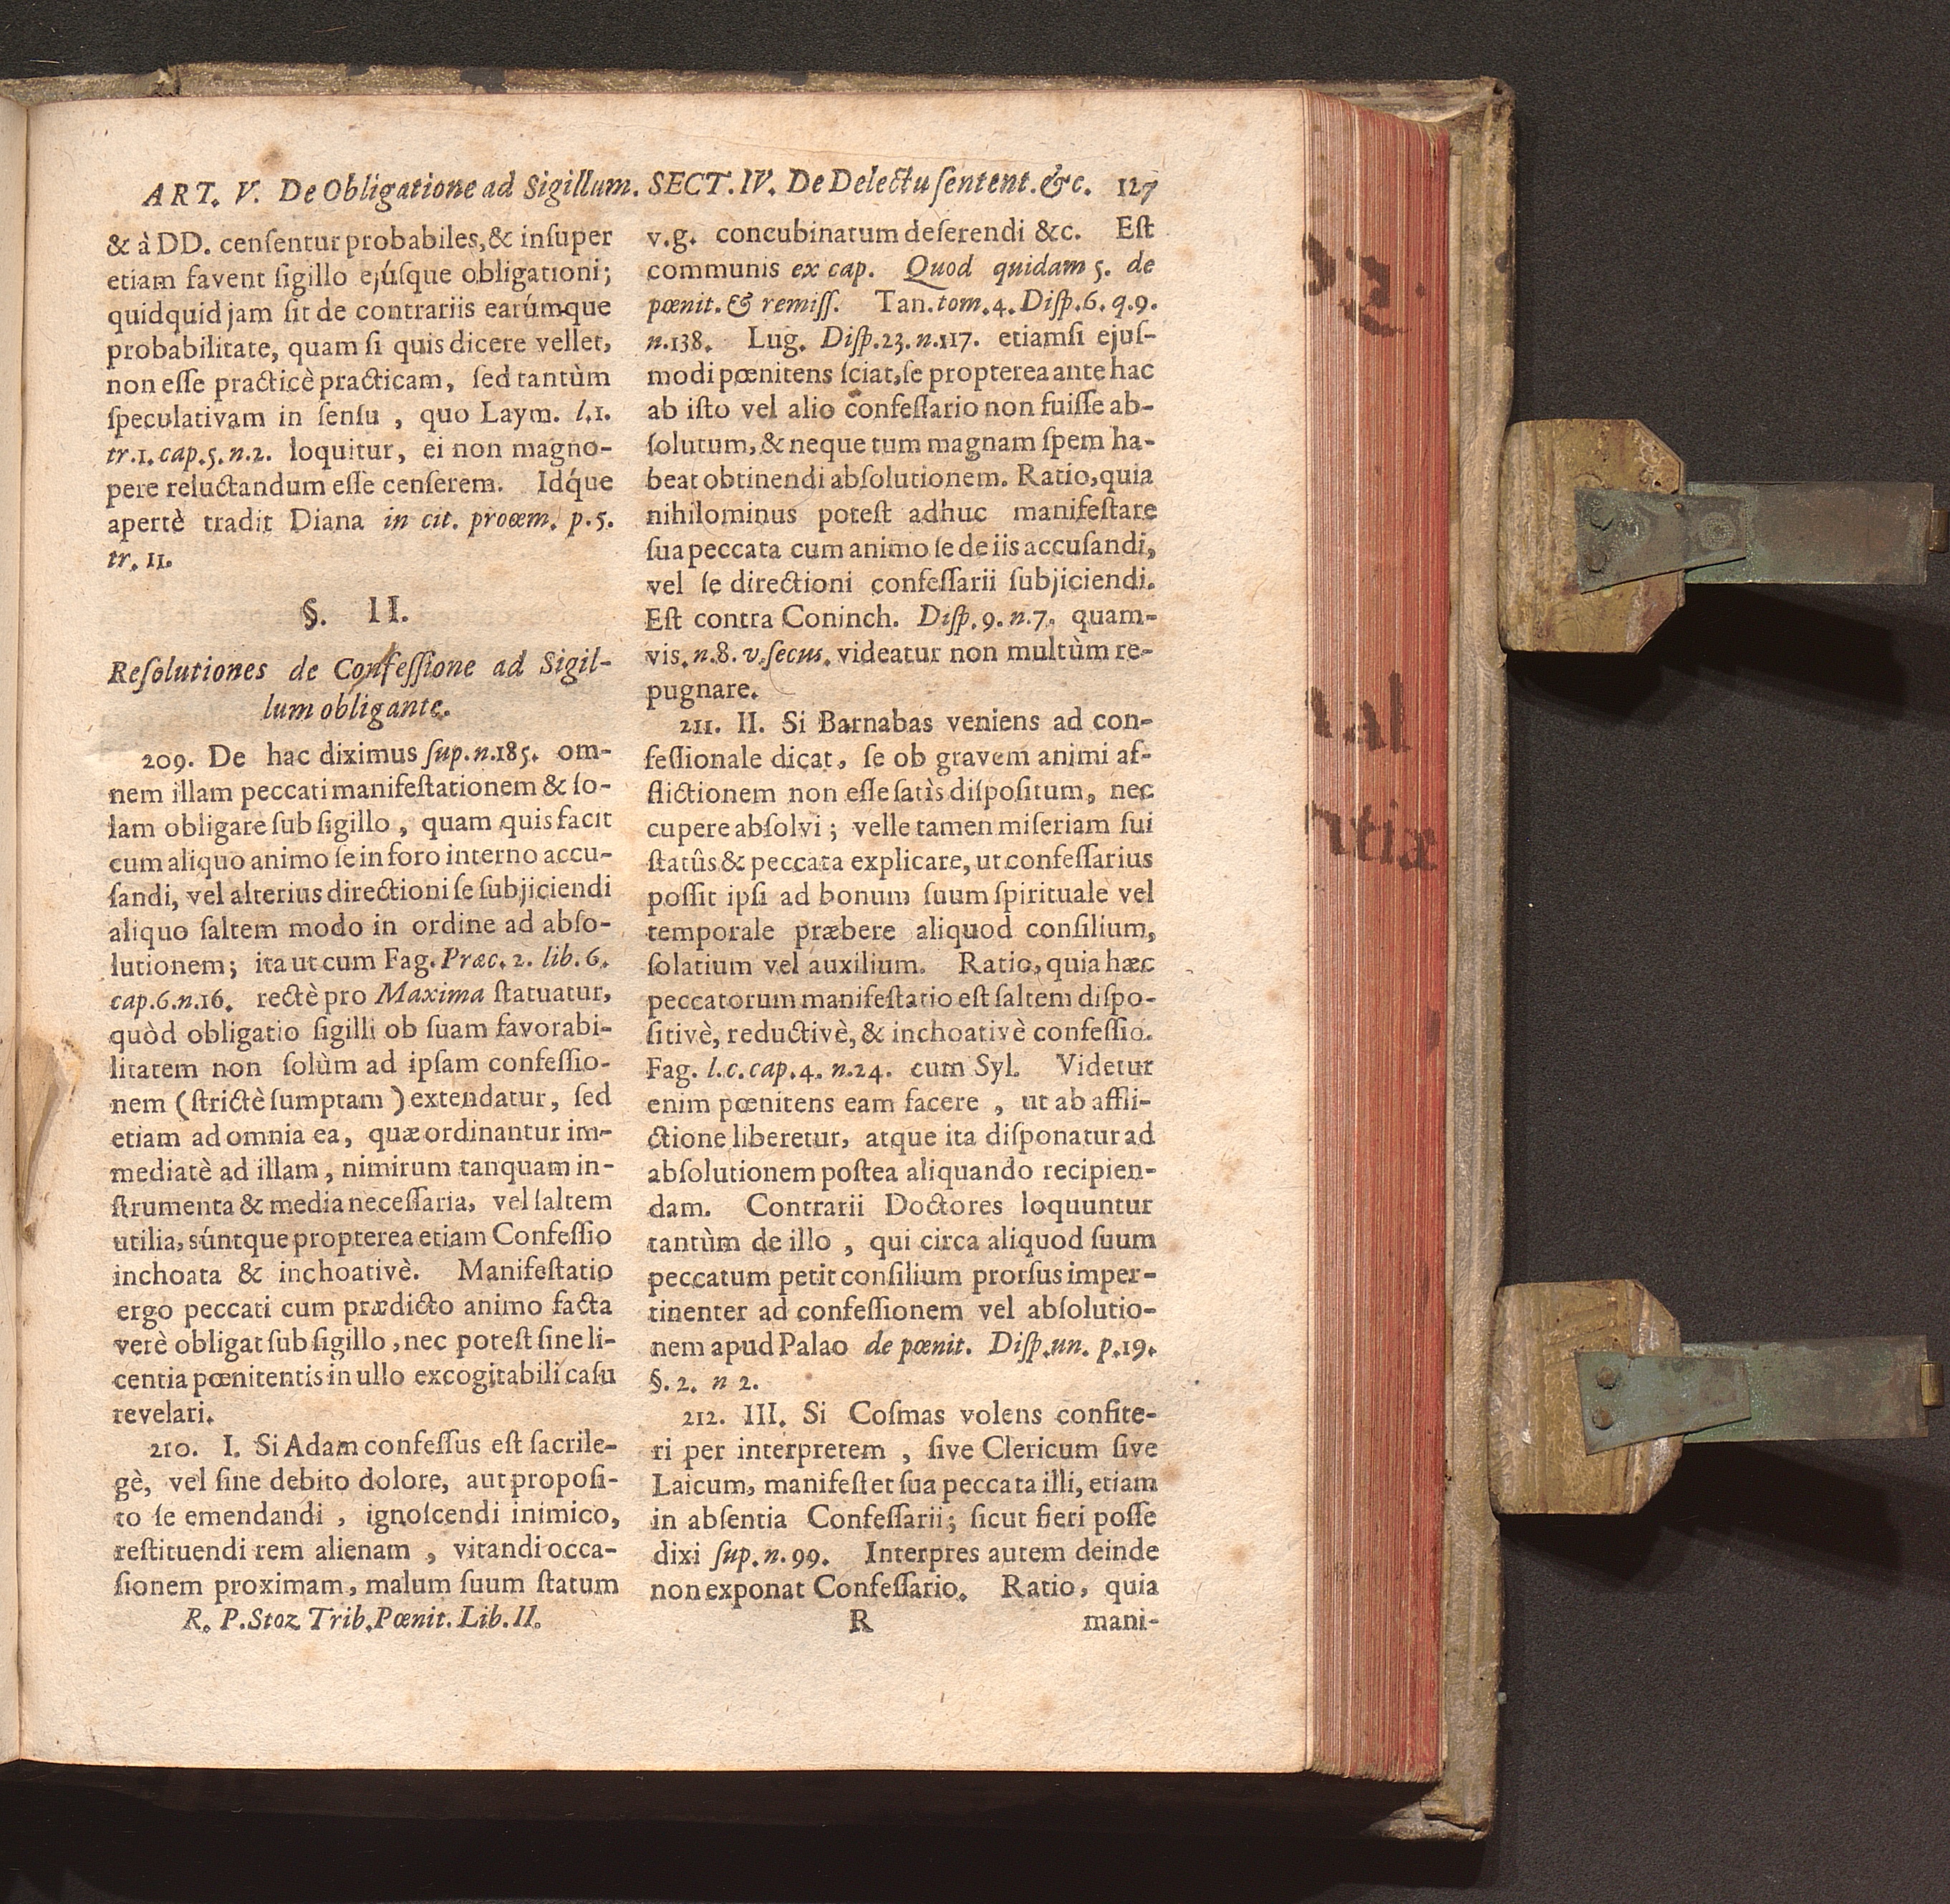 ART. V. De Obligatione ad Sigillum. SECT. IV. De Delectu ſentent. &c. 127
& à DD. cenſentur probabiles, & inſuper
etiam favent ſigillo ejúſque obligationi;
quidquid jam ſit de contrariis earúmque
probabilitate, quam ſi quis dicere vellet,
non eſſe practicè practicam, ſed tantùm
ſpeculativam in ſenſu , quo Laym. l.1.
tr.1. cap.5. n.2. loquitur, ei non magno-
pere reluctandum eſſe cenſerem. Idq́ue
apertè tradit Diana in cit. proœm. p.5.
tr. 11.
§. II.
Reſolutiones de Confeſſione ad Sigil-
lum obligante.
209. De hac diximus ſup. n.185. om-
nem illam peccati manifeſtationem & ſo-
lam obligare ſub ſigillo , quam quis facit
cum aliquo animo ſe in foro interno accu-
ſandi, vel alterius directioni ſe ſubjiciendi
aliquo ſaltem modo in ordine ad abſo-
lutionem; ita ut cum Fag. Præc. 2. lib. 6.
cap.6.n.16. rectè pro Maxima ſtatuatur,
quòd obligatio ſigilli ob ſuam favorabi-
litatem non ſolùm ad ipſam confeſſio-
nem (ſtrictè ſumptam ) extendatur, ſed
etiam ad omnia ea, quæ ordinantur im-
mediatè ad illam , nimirum tanquam in-
ſtrumenta & media neceſſaria, vel ſaltem
utilia, súntque propterea etiam Confeſſio
inchoata & inchoativè. Manifeſtatio
ergo peccati cum prædicto animo facta
verè obligat ſub ſigillo , nec poteſt ſine li-
centia pœnitentis in ullo excogitabili caſu
revelari.
210. I. Si Adam confeſſus eſt ſacrile-
gè, vel ſine debito dolore, aut propoſi-
to ſe emendandi , ignoſcendi inimico,
reſtituendi rem alienam , vitandi occa-
ſionem proximam, malum ſuum ſtatum
R. P. Stoz Trib. Pœnit. Lib. II.
v.g. concubinatum deſerendi &c. Eſt
communis ex cap. Quod quidam 5. de
pœnit. & remiſſ. Tan. tom. 4. Diſp. 6. q. 9.
n.138. Lug. Diſp. 23. n.117. etiamſi ejuſ-
modi pœnitens ſciat, ſe propterea ante hac
ab iſto vel alio confeſſario non fuiſſe ab-
ſolutum, & neque tum magnam ſpem ha-
beat obtinendi abſolutionem. Ratio, quia
nihilominus poteſt adhuc manifeſtare
ſua peccata cum animo ſe de iis accuſandi,
vel ſe directioni confeſſarii ſubjiciendi.
Eſt contra Coninch. Diſp. 9. n. 7. quam-
vis. n. 8. v. ſecus. videatur non multùm re-
pugnare.
211. II. Si Barnabas veniens ad con-
feſſionale dicat, ſe ob gravem animi af-
flictionem non eſſe ſatìs diſpoſitum, nec
cupere abſolvi ; velle tamen miſeriam ſui
ſtatûs & peccata explicare, ut confeſſarius
poſſit ipſi ad bonum ſuum ſpirituale vel
temporale præbere aliquod conſilium,
ſolatium vel auxilium. Ratio, quia hæc
peccatorum manifeſtatio eſt ſaltem diſpo-
ſitivè, reductivè, & inchoativè confeſſio.
Fag. l. c. cap. 4. n. 24. cum Syl. Videtur
enim pœnitens eam facere , ut ab affli-
ctione liberetur, atque ita diſponatur ad
abſolutionem poſtea aliquando recipien-
dam. Contrarii Doctores loquuntur
tantùm de illo , qui circa aliquod ſuum
peccatum petit conſilium prorſus imper-
tinenter ad confeſſionem vel abſolutio-
nem apud Palao de pœnit. Diſp. un. p. 19.
§. 2. n 2.
212. III. Si Coſmas volens confite-
ri per interpretem , ſive Clericum ſive
Laicum, manifeſtet ſua peccata illi, etiam
in abſentia Confeſſarii; ſicut fieri poſſe
dixi ſup. n. 99. Interpres autem deinde
non exponat Confeſſario. Ratio, quia
R mani-